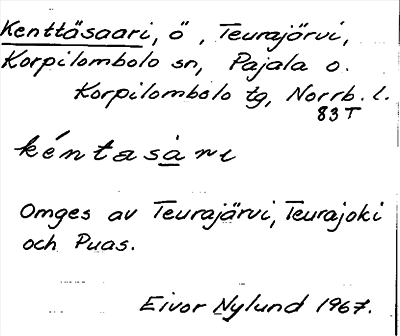 Kenttäsaari, ö, Teurajärvi,
Korpilombolo sn, Pajala o.
Korpilombolo tg, Norrb. l.
83 T
kéntasạri
Omges av Teurajärvi, Teurajoki
och Puas.
Eivor Nylund 1967.